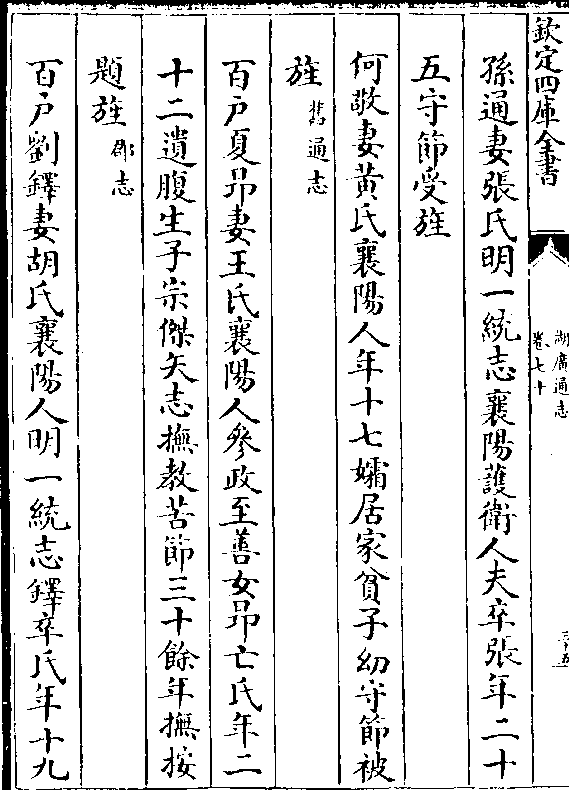 欽定四庫全書
湖廣通志
卷七十
三十五
孫通妻張氏明一統志襄陽護衛人夫卒張年二十
五守節受旌
何敬妻黃氏襄陽人年十七孀居家貧子幼守節被
旌舊通志
百戸夏昻妻王氏襄陽人參政至善女昻亡氏年二
十二遺腹生子宗傑矢志撫教苦節三十餘年撫按
題旌郡志
百戸劉鐸妻胡氏襄陽人明一統志鐸卒氏年十九